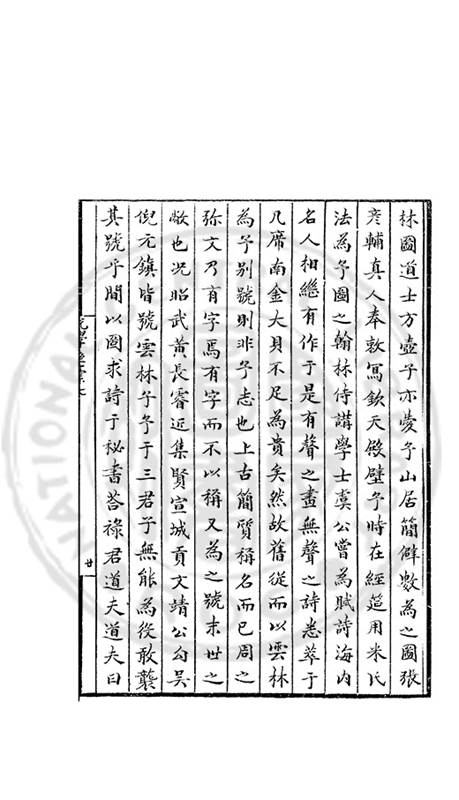 林圖道士方壺子亦愛予山居簡僻數為之圖張
彥輔真人奉敕寫欽天殿壁予時在經筵用米氏
法為予圖之翰林侍講學士虞公嘗為賦詩海内
名人相繼有作于是有聲之畫無聲之詩悉萃于
几席南金大貝不足為貴矣然故舊從而以雲林
為予別號則非予志也上古簡質稱名而已周之
弥文乃有字焉有字而不以稱又為之號末世之
敝也况昭武黄長睿近集賢宣城貢文靖公句吴
倪元鎮皆號雲林子予于三君子無能為役敢襲
其號乎間以圖求詩于秘書荅祿君道夫道夫曰
廿
NATIONAL